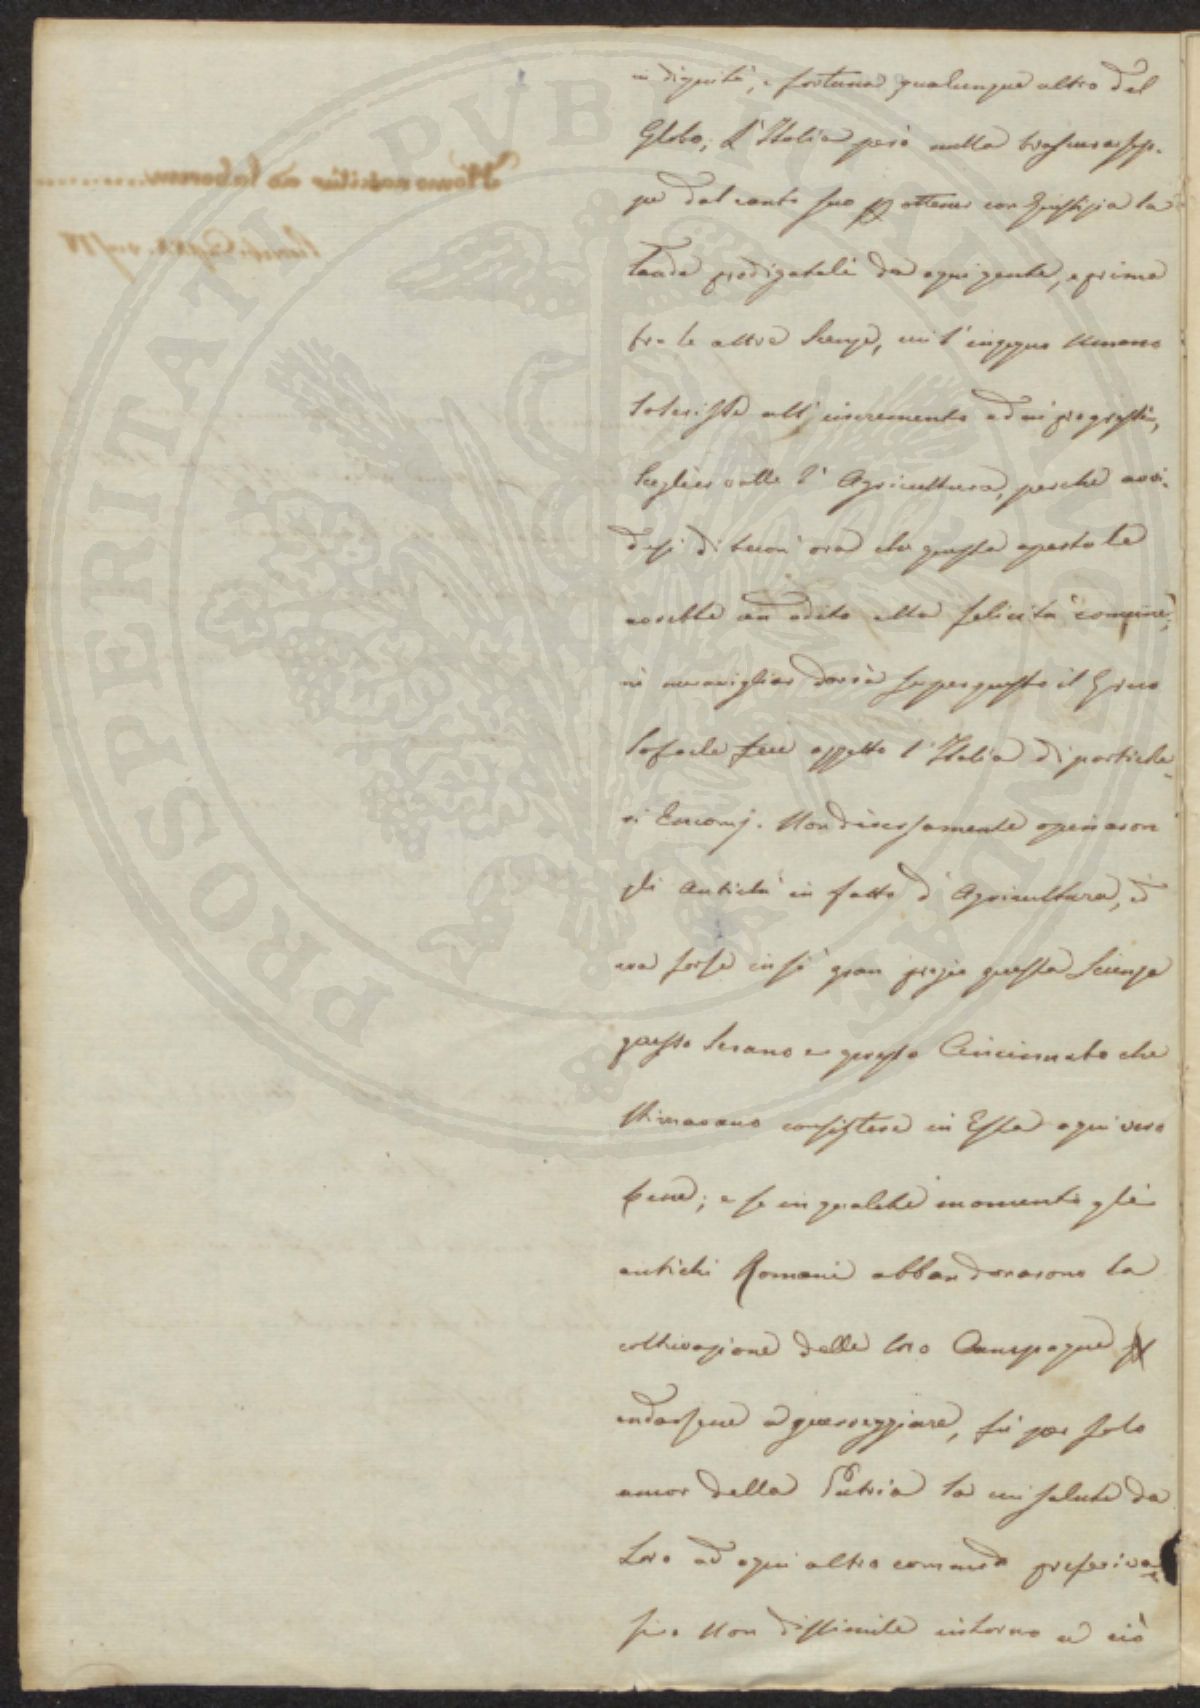 in dignità, e fortuna qualunque altro del
Globo; l'Italia però nulla trascurassep-
pe dal canto suo p ottener con Giustizia la
laude prodigatale da ogni gente, e prima
fra le altre Scienze, cui l'ingegno Umano
all'incremento ed ai progressi,
Sceglier volle l'Agricultura, perchè avvi-
desi di buon' ora che questa aperto le
avrebbe un adito alla felicità comune;
nè maravigliar dovrà se per questo il Greco
Sofocle fece oggetto l'Italia di partichla-
ri Encomj. Non diversamente opinaron
gli Antichi in fatto d'Agricultura, ed
era forse in sì gran pregio questa Scienza
presso Serano e presso Cincinnato che
stimavano consistere in Essa ogni vero
bene; e se in qualche momento gli
antichi Romani abbandonarono la
coltivazione delle loro Campagne p
andarsene a guerreggiare, fù per solo
amor della Patria la cui salute da
Loro ad ogni altro comando preferiva-
si. Non dissimile intorno a ciò
Homo nascitur ad laborem
PROSPERITATI PUBLICAE AUGENDAE